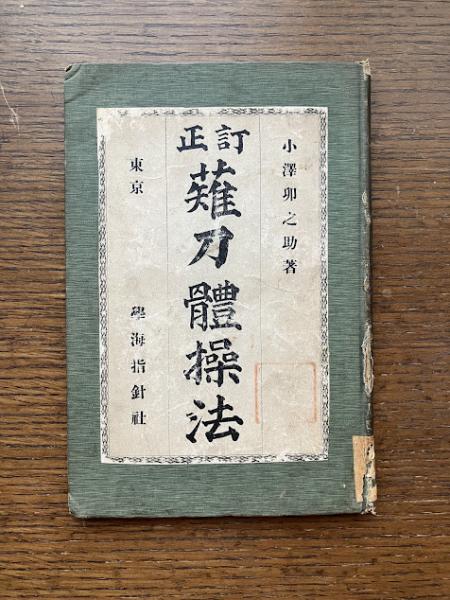 小澤卯之助著
訂正
薙刀體操法
東京 學海指針社